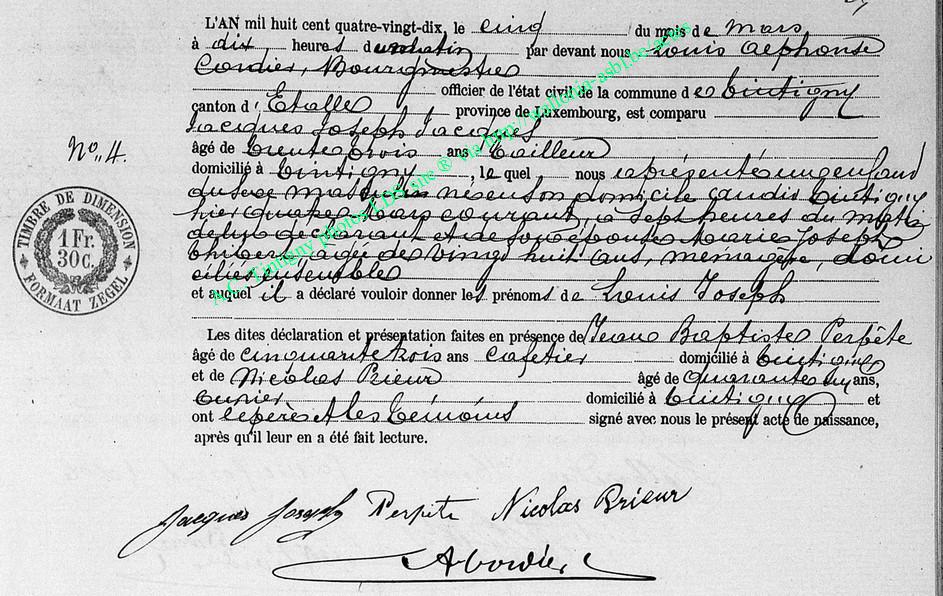 L'AN mil huit cent quatre-vingt-dix, le cinq du mois de mars
à dix heures du matin par devant nous Louis Alphonse
Cordier, Bourgmestre
officier de l'état civil de la commune de Tintigny
canton d'Etalle province de Luxembourg, est comparu
Jacques Joseph Jacques
No. 4.
âgé de trente trois ans Tailleur
domicilié à Tintigny, lequel nous a présenté un enfant
du sexe masculin né en son domicile audit Tintigny
hier quatre mars courant, à sept heures du matin
de lui déclarant et de son épouse Marie Joseph
agée de vingt huit ans, ménagère, domi
ciliés ensemble
et auquel il a déclaré vouloir donner les prénoms de Louis Joseph
Les dites déclaration et présentation faites en présence de Jean Baptiste Perpête
âgé de cinquante trois ans cafetier domicilié à Tintigny
et de Nicolas Prieur âgé de quarante ans,
domicilié à Tintigny et
ont le père et les témoins signé avec nous le présent acte de naissance,
après qu'il leur en a été fait lecture.
Jacques Joseph Perpête Nicolas Prieur
A Cordier
TIMBRE DE DIMENSION
1 Fr.
30 c.
FORMAAT ZEGEL
A.C. Tintigny photos LDS via http://wallonia-asbl.be/